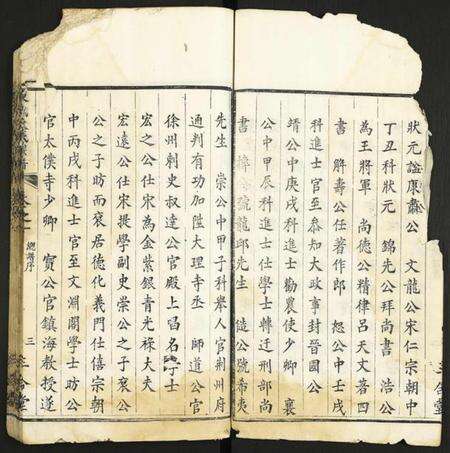 狀元諡康肅公　文龍公宋仁宗朝中
丁丑科狀元　錦先公拜尚書　浩公
為王將軍　尚德公精律呂天文著四
書　解壽公任著作郎　恕公中壬戌
科進士官至參知大政事封晉國公
靖公中庚戌科進士勸農使少卿　襄
公中甲辰科進士仕學士轉迁刑部尚
書　號龍邱先生　慥公號希夷
先生　崇公中甲子科舉人官荊州府
通判有功加陞大理寺丞　師道公官
徐州刺史叔達公官殿上昌名士
宏之公仕宋為金紫銀青光祿大夫
宏遠公仕宋提學副史崇公之子袞公
公之子昉而袞居德化義門仕僖宗朝
中丙戌科進士官至文淵閣學士昉公
官太僕寺少卿　實公官鎮海教授遂
源譜序
三
三合堂